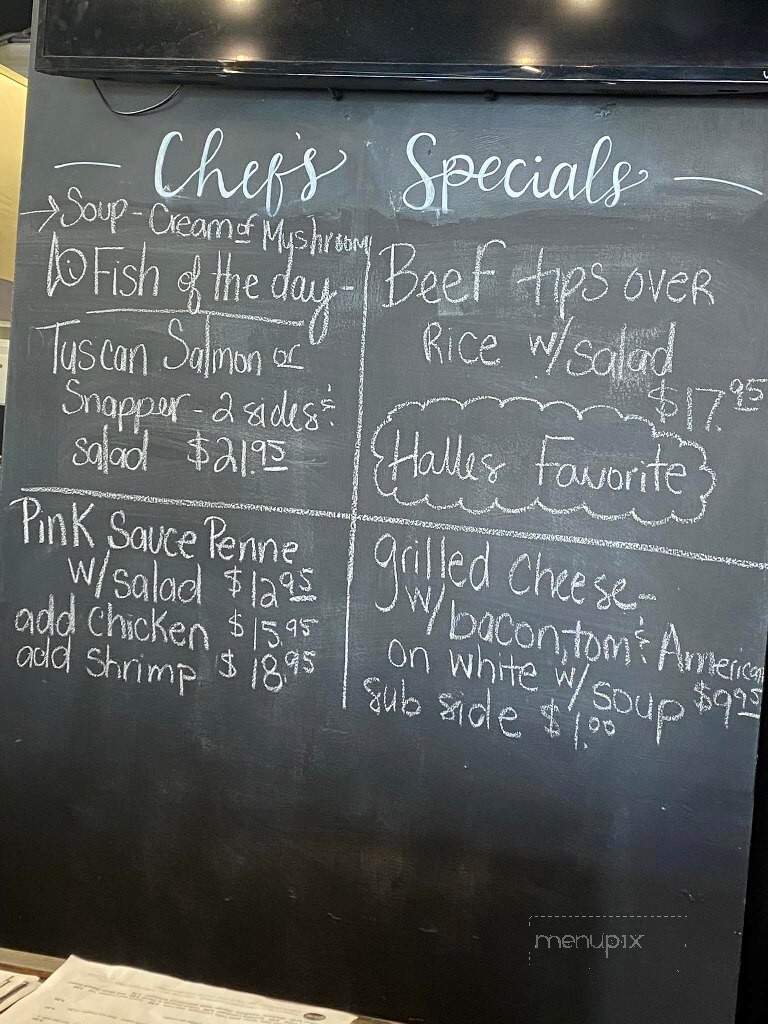 Chef's Specials
→Soup - Cream of Mushroom
Fish of the day -
Tuscan Salmon or
Snapper - 2 sides &
salad $21.95
Beef tips over
Rice w/salad
$17.95
Halles Favorite
Pink Sauce Penne
w/salad $12.95
add chicken $15.95
add shrimp $18.95
grilled cheese -
w/bacon, tom & American
on white w/soup $9.95
sub side $1.00
menupix